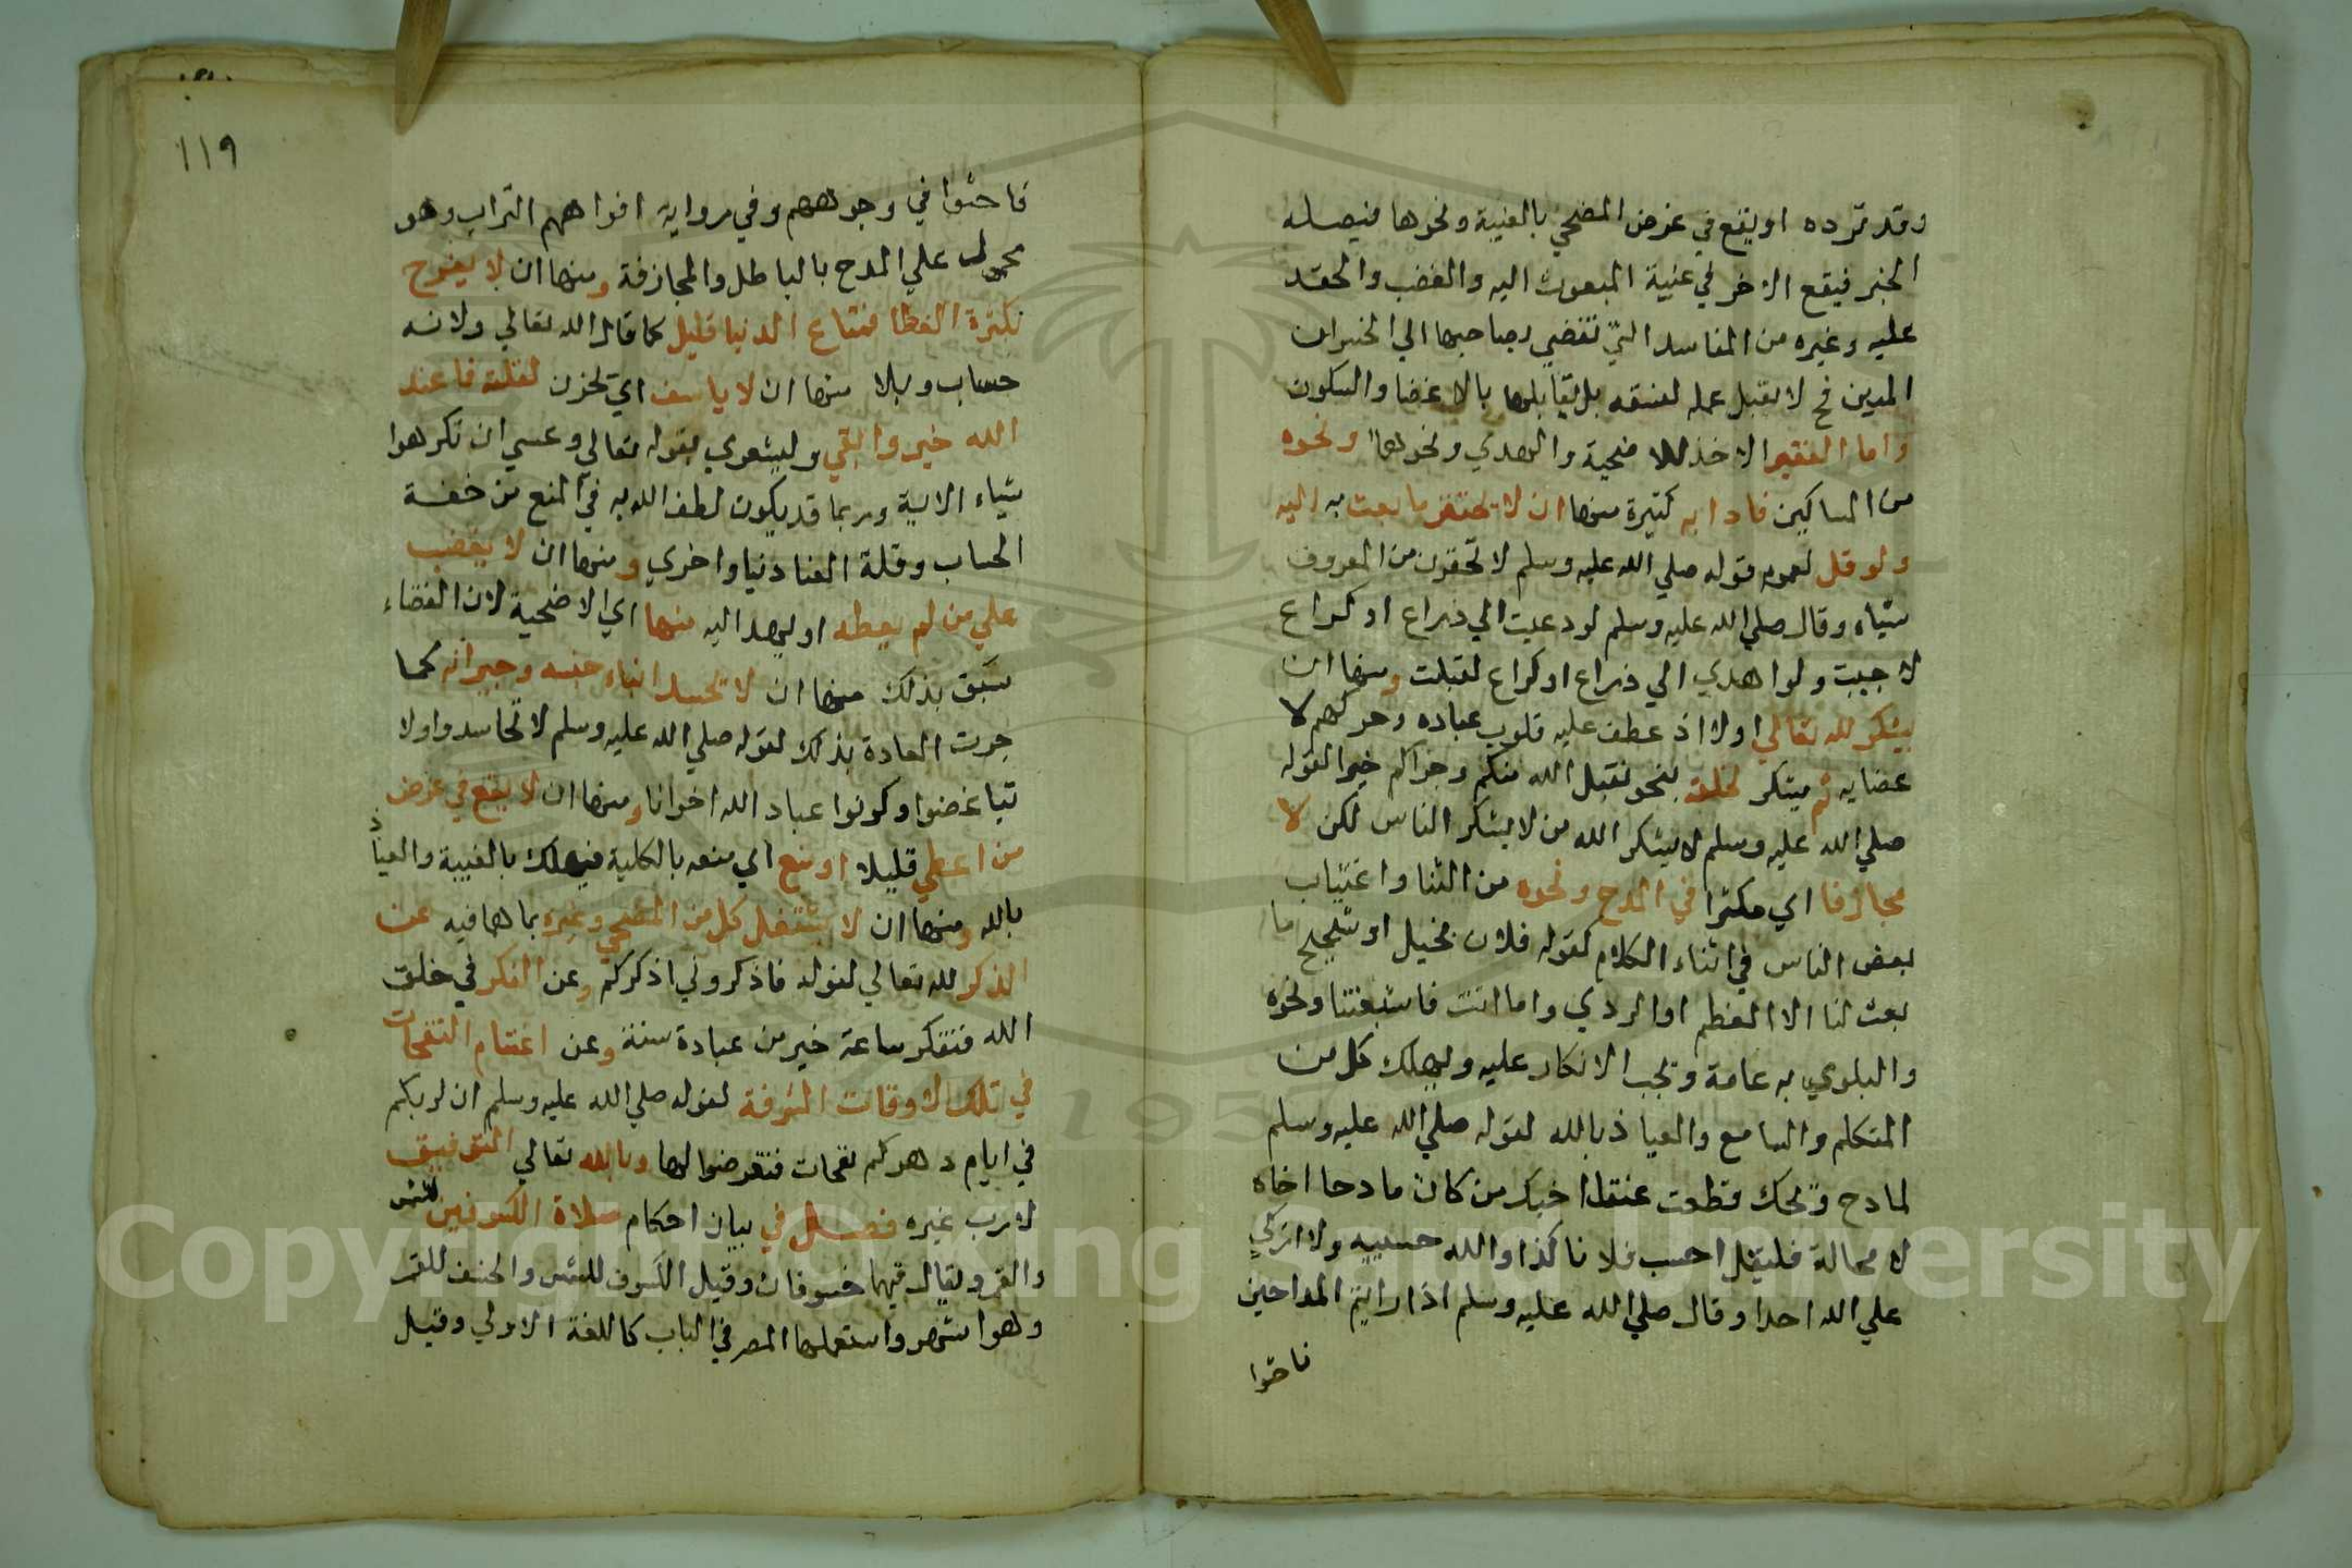 وقد ترده او يقع في عرض المضحي بالغيبة ونحوها فيصله
الخبر فيقع الاخر في غيبة المبعوث اليه والغضب والحقد
عليه وغيره من المفاسد التي تفضي بصاحبها الي الخسران
المبين فح لا يقبل عمله لفسقه بل يقابلها بالاغضا والسكون
واما الفقير الاخذ للاضحية والهدي ونحوهما ونحوه
من المساكين فادابه كثيرة منها ان لا يحتقر ما بعث به اليه
ولو قل لعموم قوله صلي الله عليه وسلم لا تحقرن من المعروف
شياه وقال صلي الله عليه وسلم لو دعيت الي ذراع او كراع
لاجبت ولو اهدي الي ذراع او كراع لقبلت ومنها ان
يشكر لله تعالي اولا اذ عطف عليه قلوب عباده وحركهم لا
عضايه ثم يشكر لخلقه بنحو تقبل الله منكم وجزاكم خيرا لقوله
صلي الله عليه وسلم لا يشكر الله من لا يشكر الناس لكن لا
مجازفا اي مكثرا في المدح ونحوه من الثنا واغتياب
بعض الناس في اثناء الكلام كقوله فلان بخيل او شحيح ما
بعث لنا الا العظم او الردي واما انت فاشبعتنا ونحوه
والبلوي به عامة ويجب الانكار عليه ويهلك كل من
المتكلم والسامع والعياذ بالله لقوله صلي الله عليه وسلم
لمادح ويحك قطعت عنق اخيك من كان مادحا اخاه
لا محالة فليقل احسب فلانا كذا والله حسيبه ولا ازكي
علي الله احدا وقال صلي الله عليه وسلم اذا رايتم المداحين
فاحثوا
١١٩
فاحثوا في وجوههم وفي رواية افواههم التراب وهو
محمول علي المدح بالباطل والمجازفة ومنها ان لا يفرح
بكثرة العطا فمتاع الدنيا قليل كما قال الله تعالي ولانه
حساب وبلا منها ان لا ياسف اي يحزن لقلته فما عند
الله خير وابقي وليتعزي بقوله تعالي وعسي ان تكرهوا
شياء الاية وربما قد يكون لطف الله به في المنع من خفة
الحساب وقلة العنا دنيا واخري ومنها ان لا يغضب
علي من لم يعطه او يهد اليه منها اي الاضحية لان القضاء
سبق بذلك منها ان لا يحسد ابناء جنسه وجيرانه كما
جرت العادة بذلك لقوله صلي الله عليه وسلم لا تحاسدوا ولا
تباغضوا وكونوا عباد الله اخوانا ومنها ان لا يقع في عرض
من اعطي قليلا او منع اي منعه بالكلية فيهلك بالغيبة والعياذ
بالله ومنها ان لا يشتغل كل من المضحي وغيره بما هما فيه عن
الذكر لله تعالي لقوله فاذكروني اذكركم وعن الفكر في خلق
الله فتفكر ساعة خير من عبادة سنة وعن اغتنام النفحات
في تلك الاوقات الشرفة لقوله صلي الله عليه وسلم ان لربكم
في ايام دهركم نفحات فتعرضوا لها وبالله تعالي التوفيق
لا رب غيره فصل في بيان احكام صلاة الكسوفين للشمس
والقمر ويقال فيهما خسوفان وقيل الكسوف للشمس والخسف للقمر
وهو اشهر واستعملها المصر في الباب كاللغة الاولي وقيل
Copyright © King Saud University
195